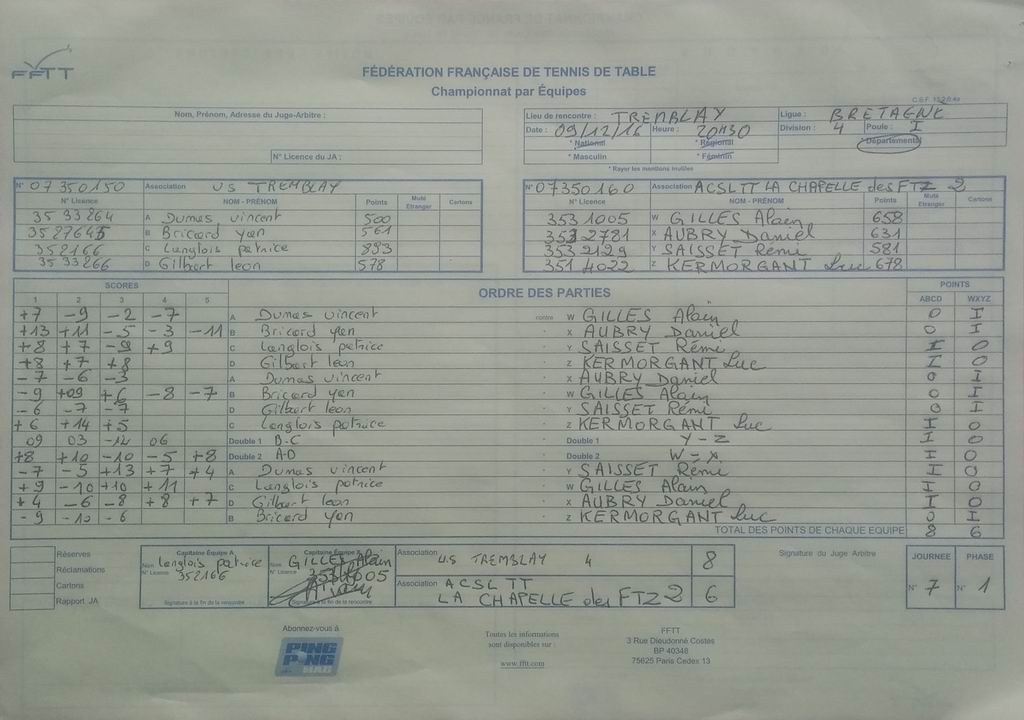 FFTT
FÉDÉRATION FRANÇAISE DE TENNIS DE TABLE
Championnat par Équipes
Nom, Prénom, Adresse du Juge-Arbitre :
N° Licence du JA :
Lieu de rencontre : TREMBLAY Ligue : BRETAGNE
Date : 09/12/16 Heure : 20H30 Division : 4 Poule : I
* National * Régional * Départemental
* Masculin * Féminin
* Rayer les mentions inutiles
N° 07350150 Association US TREMBLAY
N° Licence NOM - PRÉNOM Points Muté Etranger Cartons
35 33264 A Dumas vincent 500
3527645 B Bricard yan 561
352166 C Langlois patrice 893
35 33266 D Gilbert leon 578
N° 07350160 Association ACSLTT LA CHAPELLE des FTZ 2
N° Licence NOM - PRÉNOM Points Muté Etranger Cartons
353 1005 W GILLES Alain 658
353 2781 X AUBRY Daniel 631
353 2129 Y SAISSET Rémi 581
351 4022 Z KERMORGANT Luc 678
SCORES ORDRE DES PARTIES POINTS
1 2 3 4 5 ABCD WXYZ
+7 -9 -2 -7 A Dumas vincent contre W GILLES Alain 0 I
+13 +11 -5 -3 -11 B Bricard yan X AUBRY Daniel 0 I
+8 +7 -9 +9 C Langlois patrice Y SAISSET Rémi I 0
+8 +7 +8 D Gilbert leon Z KERMORGANT Luc I 0
-7 -6 -3 A Dumas vincent X AUBRY Daniel 0 I
-9 +09 +6 -8 -7 B Bricard yan W GILLES Alain 0 I
-6 -7 -7 D Gilbert leon Y SAISSET Rémi 0 I
+6 +14 +5 C Langlois patrice Z KERMORGANT Luc I 0
09 03 -12 06 Double 1 B-C Double 1 Y-Z I 0
+8 +10 -10 -5 +8 Double 2 A-D Double 2 W-X I 0
-7 -5 +13 +7 +4 A Dumas vincent Y SAISSET Rémi I 0
+9 -10 +10 +11 C Langlois patrice W GILLES Alain I 0
+4 -6 -8 +8 +7 D Gilbert leon X AUBRY Daniel I 0
-9 -10 -6 B Bricard yan Z KERMORGANT Luc 0 I
TOTAL DES POINTS DE CHAQUE EQUIPE 8 6
Réserves
Réclamations
Cartons
Rapport JA
Capitaine Équipe A
Nom Langlois patrice
N° Licence 352166
Signature à la fin de la rencontre
Capitaine Équipe X
Nom GILLES Alain
N° Licence 3531005
Signature à la fin de la rencontre
Association U.S TREMBLAY 4 8
Association ACSL TT
LA CHAPELLE des FTZ 2 6
Signature du Juge Arbitre
JOURNEE PHASE
N° 7 N° 1
Abonnez-vous à
PING PONG MAG
Toutes les informations
sont disponibles sur :
www.fftt.com
FFTT
3 Rue Dieudonné Costes
BP 40348
75625 Paris Cedex 13